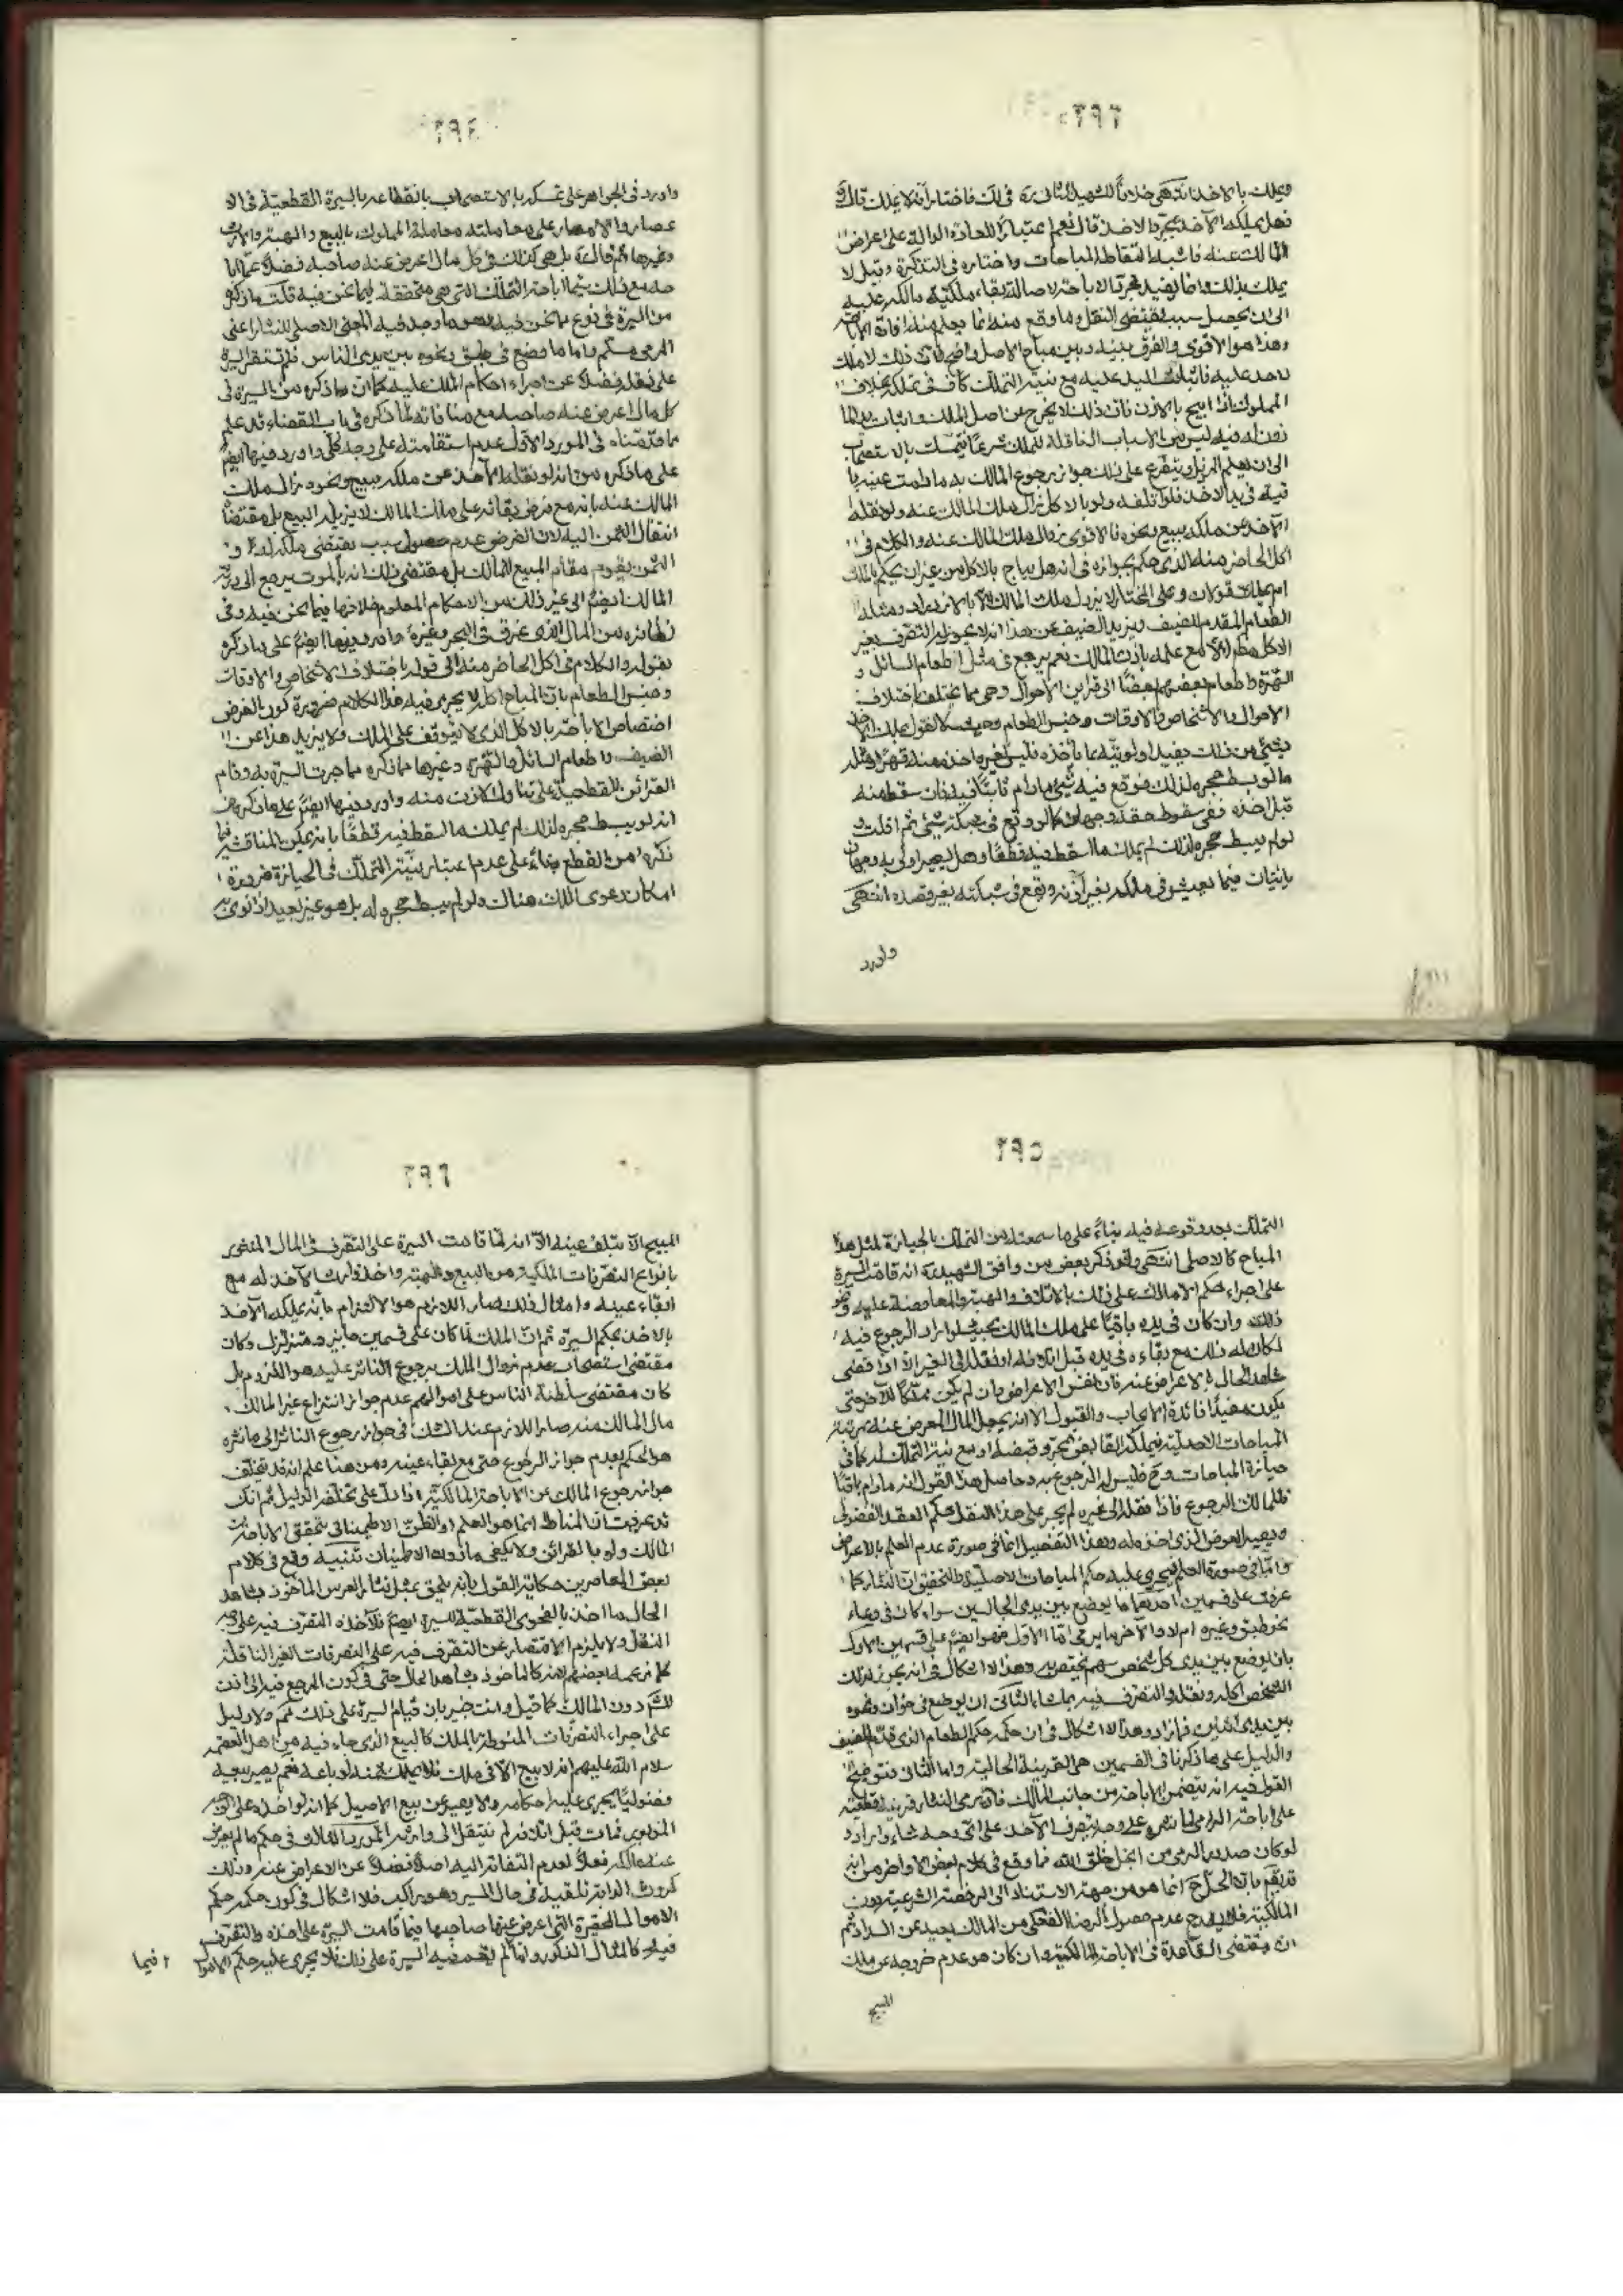 ٢٩٣
ويملك بالاخذ انتهى خلافاً للشهيد الثاني ره في لك فاختار انه لا يملك قال
فهل يملكه الآخذ بمجرد الاخذ قال نعم اعتباراً للعادة الدالة على اعراض
المالك عنه فاشبه التقاط المباحات واختاره في التذكرة وقيل لا
يملك بذلك وانما يفيد مجرد الاباحة لاصالة بقاء ملكية مالكه عليه
الى ان يحصل سبب يقتضي النقل وما وقع منه انما يعلم منه افادة الاباحة
وهذا هو الاقوى والفرق بينه وبين مباح الاصل واضح فان ذلك لا ملك
لاحد عليه فاثبات اليد عليه مع نية التملك كاف في تملكه بخلاف
المملوك اذا ابيح بالاذن فان ذلك لا يخرج عن اصل الملك واثبات يد الما
ذون له فيه ليس من الاسباب الناقلة للملك شرعاً فيتمسك بالاستصحاب
الى ان يعلم المزيل ويتفرع على ذلك جواز رجوع المالك به ما دامت عينه با
قية في يد الاخذ فلو اتلفه ولو بالاكل زال ملك المالك عنه ولو نقله
الآخذ عن ملكه ببيع ونحوه فالاقوى زوال ملك المالك عنه والكلام في
اكل الحاضر منه الذي حكم بجوازه في انه هل يباح بالاكل من غير ان يحكم بالملك
ام يملك قولان وعلى المختار لا يزول ملك المالك الا بالازدراد ومثله
الطعام المقدم للضيف ويزيد الضيف عن هذا انه لا يجوز له التصرف بغير
الاكل مطلقا الا مع علمه باذن المالك نعم يرجع في مثل اطعام السائل و
الهرة واطعام بعضهم بعضاً الى قراين الاحوال وهي مما يختلف باختلاف
الاحوال والاشخاص والاوقات وجنس الطعام وحيث لا نقول بملك الآخذ
بشيء من ذلك يفيد اولويته بما يأخذه فليس لغيره اخذه منه قهراً ومثله
ما لو بسط حجره لذلك فوقع فيه شيء ما دام ثابتاً فيه فان سقط منه
قبل اخذه ففي سقوط حقه وجهان كما لو وقع في شبكته شيء ثم افلت و
لو لم يبسط حجره لذلك لم يملك ما سقط فيه قطعاً وهل يصير اولى به وجهان
يأتيان فيما يعشش في ملكه بغير اذنه ويقع في شبكته بغير قصده انتهى
واورد
٢٩٤
واورد في الجواهر على تمسكه بالاستصحاب بانقطاعه بالسيرة القطعية في الا
عصار والامصار على معاملته معاملة المملوك بالبيع والهبة والارث
وغيرها ثم قال ره بل هي كذلك في كل مال اعرض عنه صاحبه فضلاً عما ابا
حه مع ذلك سيما اباحة التملك التي هي متحققة فيما نحن فيه قلت ما ذكره
من السيرة في نوع ما نحن فيه وهو ما وجد فيه المعنى الاصلي للنثار اعني
الرمي مسلم واما ما وضع في طبق ونحوه بين يدي الناس فلم تستقر السيرة
على نقله فضلاً عن اجراء احكام الملك عليه كما ان ما ذكره من السيرة في
كل مال اعرض عنه صاحبه مع منافاته لما ذكره في باب القضاء قد علم
مما قدمناه في المورد الاول عدم استقامته على وجه كلي واورد فيها ايضا
على ما ذكره من انه لو نقله الآخذ عن ملكه ببيع ونحوه زال ملك
المالك عنه بانه مع فرض بقائه على ملك المالك لا يزيله البيع بل مقتضاه
انتقال الثمن اليه لان الفرض عدم حصول سبب يقتضي ملكه له و
الثمن يقوم مقام المبيع للمالك بل مقتضى ذلك انه بالموت يرجع الى ورثة
المالك ايضا الى غير ذلك من الاحكام المعلوم خلافها فيما نحن فيه وفي
نظائره من المال الذي غرق في البحر وغيره واورد فيها ايضا على ما ذكره
بقوله والكلام في اكل الحاضر منه الى قوله باختلاف الاشخاص والاوقات
وجنس الطعام بان المباح اكله لا يجري فيه هذا الكلام ضرورة كون الفرض
اختصاص الاباحة بالاكل الذي لا يتوقف على الملك ولا يزيد هذا عن
الضيف واطعام السائل والهرة وغيرها مما ذكره مما جرت السيرة به وقام
القرائن القطعية على تناول الاذن منه واورد فيها ايضا على ما ذكره من
انه لو بسط حجره لذلك لم يملك ما سقط فيه قطعاً بانه يمكن المناقشة فيما
ذكره من القطع بناءً على عدم اعتبار نية التملك في الحيازة ضرورة
امكان دعوى الملك هناك ولو لم يبسط حجره له بل هو غير بعيد اذا نوى به
٢٩٥
التملك بعد وقوعه فيه بناءً على ما سمعته من التملك بالحيازة لمثل هذا
المباح كالاصلي انتهى وقد ذكر بعض من وافق الشهيد ره انه قامت السيرة
على اجراء حكم الاملاك على ذلك بالاتلاف والهبة والمعاوضة عليه ونحو
ذلك وان كان في يده باقياً على ملك المالك بحيث لو اراد الرجوع فيه
لكان له ذلك مع بقاءه في يده قبل اتلافه او نقله الى الغير الا اذا قضى
شاهد الحال بالاعراض عنه فان نفس الاعراض وان لم يكن مملكاً للآخر حتى
يكون مفيداً فائدة الايجاب والقبول الا انه يجعل المال المعرض عنه بمنزلة
المباحات الاصلية فيملكه القابض بمجرد قبضه او مع نية التملك له كما في
حيازة المباحات وح فليس له الرجوع به وحاصل هذا القول انه ما دام باقياً
فللمالك الرجوع فاذا نقله الى غيره لم يجر على هذا النقل حكم العقد الفضولي
ويصير العوض الذي اخذه له وهذا التفصيل انما في صورة عدم العلم بالاعراض
واما في صورة العلم فيجري عليه حكم المباحات الاصلية والتحقيق ان النثار كما
عرفت على قسمين احدهما ما يوضع بين يدي الجالسين سواء كان في وعاء
نحو طبق وغيره ام لا والآخر ما يرمى اما الاول فهو ايضا على قسمين الاول
بان يوضع بين يدي كل شخص سهم يختص به وهذا لا اشكال في انه يجوز لذلك
الشخص اكله ونقله والتصرف فيه بما شاء الثاني ان يوضع في خوان ونحوه
بين يدي اثنين فزائد وهذا لا اشكال في ان حكمه حكم الطعام الذي قدم للضيف
والدليل على ما ذكرنا في القسمين هي القرينة الحالية واما الثاني فتوضيح
القول فيه انه يتضمن الاباحة من جانب المالك فان رمي النثار قرينة قطعية
على اباحة الرامي لما رمى على وجه يتصرف الآخذ على اي وجه شاء واراد و
لو كان صدر الرمي من ابخل خلق الله فما وقع في كلام بعض الاواخر من انه
المالكية فلا يقدح عدم حصول الرضا الفعلي من المالك بعيد عن السداد ثم
ان مقتضى القاعدة في الاباحة المالكية وان كان هو عدم خروجه عن ملك
المبيح
٢٩٦
المبيح الا بتلف عينه الا انه لما قامت السيرة على التصرف في المال المنثور
بانواع التصرفات الملكية من البيع والهبة واخذ وارث الآخذ له مع
ابقاء عينه وامثال ذلك صار اللازم هو الالتزام بانه يملكه الآخذ
بالاخذ بحكم السيرة ثم ان الملك لما كان على قسمين جايز ومتزلزل وكان
مقتضى استصحاب عدم زوال الملك برجوع الناثر عليه هو اللزوم بل
كان مقتضى سلطنة الناس على اموالهم عدم جواز انتزاع غير المالك
مال المالك منه صار اللازم عند الشك في جواز رجوع الناثر الى ما نثره
هو الحكم بعدم جواز الرجوع حتى مع بقاء عينه ومن هنا علم انه قد يتخلف
جواز رجوع المالك عن الاباحة المالكية اذا دل على تخلفه الدليل ثم انك
قد عرفت ان المناط انما هو العلم او الظن الاطمينانى بتحقق الاباحة من
المالك ولو بالقرائن ولا يكفي ما دون الاطمينان تنبيه وقع في كلام
بعض المعاصرين حكاية القول بانه يلحق بمثل نثار العرس المأخوذ بشاهد
الحال ما اخذ بالفحوى القطعية للسيرة ايضا فلآخذه التصرف فيه على وجه
النقل ولا يلزم الاقتصار عن التصرف فيه على التصرفات الغير الناقلة
كما زعمه بعضهم لانه كالمأخوذ بشاهد الحال حتى في كون المرجع فيه الى اذن
الشرع دون المالك كما قيل وانت خبير بان قيام السيرة على ذلك مم ولا دليل
على اجراء التصرفات المنوطة بالملك كالبيع الذي جاء فيه من اهل العصمة
سلام الله عليهم انه لا بيع الا في ملك فلا يملك ثمنه لو باعه نعم يصير بيعه
فضولياً يجري عليه احكامه ولا يصير من بيع الاصيل كما انه لو اخذه على الوجه
المزبور فمات قبل اتلافه لم ينتقل الى وارثه المورد الثالث في حكم ما لم يعرض
عنه مالكه فعلاً لعدم التفاته اليه اصلاً فضلاً عن الاعراض عنه وذلك
كروث الدابة تلقيه في حال السير وهو راكب فلا اشكال في كون حكمه حكم
الاموال الحقيرة التي اعرض عنها صاحبها فيما قامت السيرة على اخذه والتصرف
فيه كالمثال المذكور واما ما لم يقم فيه السيرة على ذلك فلا يجري عليه حكم الاموال
فيما